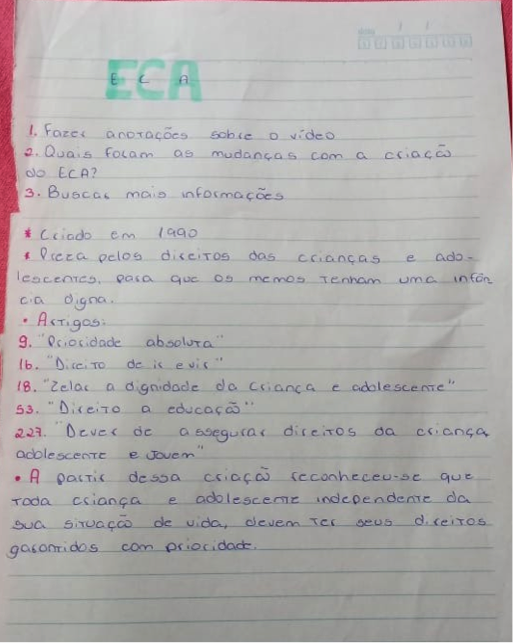 ECA
E C A
1. Fazer anotações sobre o vídeo
2. Quais foram as mudanças com a criação
do ECA?
3. Buscar mais informações
* Criado em 1990
* Preza pelos direitos das crianças e ado-
lescentes, para que os memos tenham uma infân
cia digna.
• Artigos:
9. "Prioridade absoluta"
16. "Direito de ir e vir"
18. "Zelar a dignidade da criança e adolescente"
53. "Direito a educação"
227. "Dever de assegurar direitos da criança,
adolescente e Jovem"
• A partir dessa criação reconheceu-se que
toda criança e adolescente independente da
sua situação de vida, devem ter seus direitos
garantidos com prioridade.